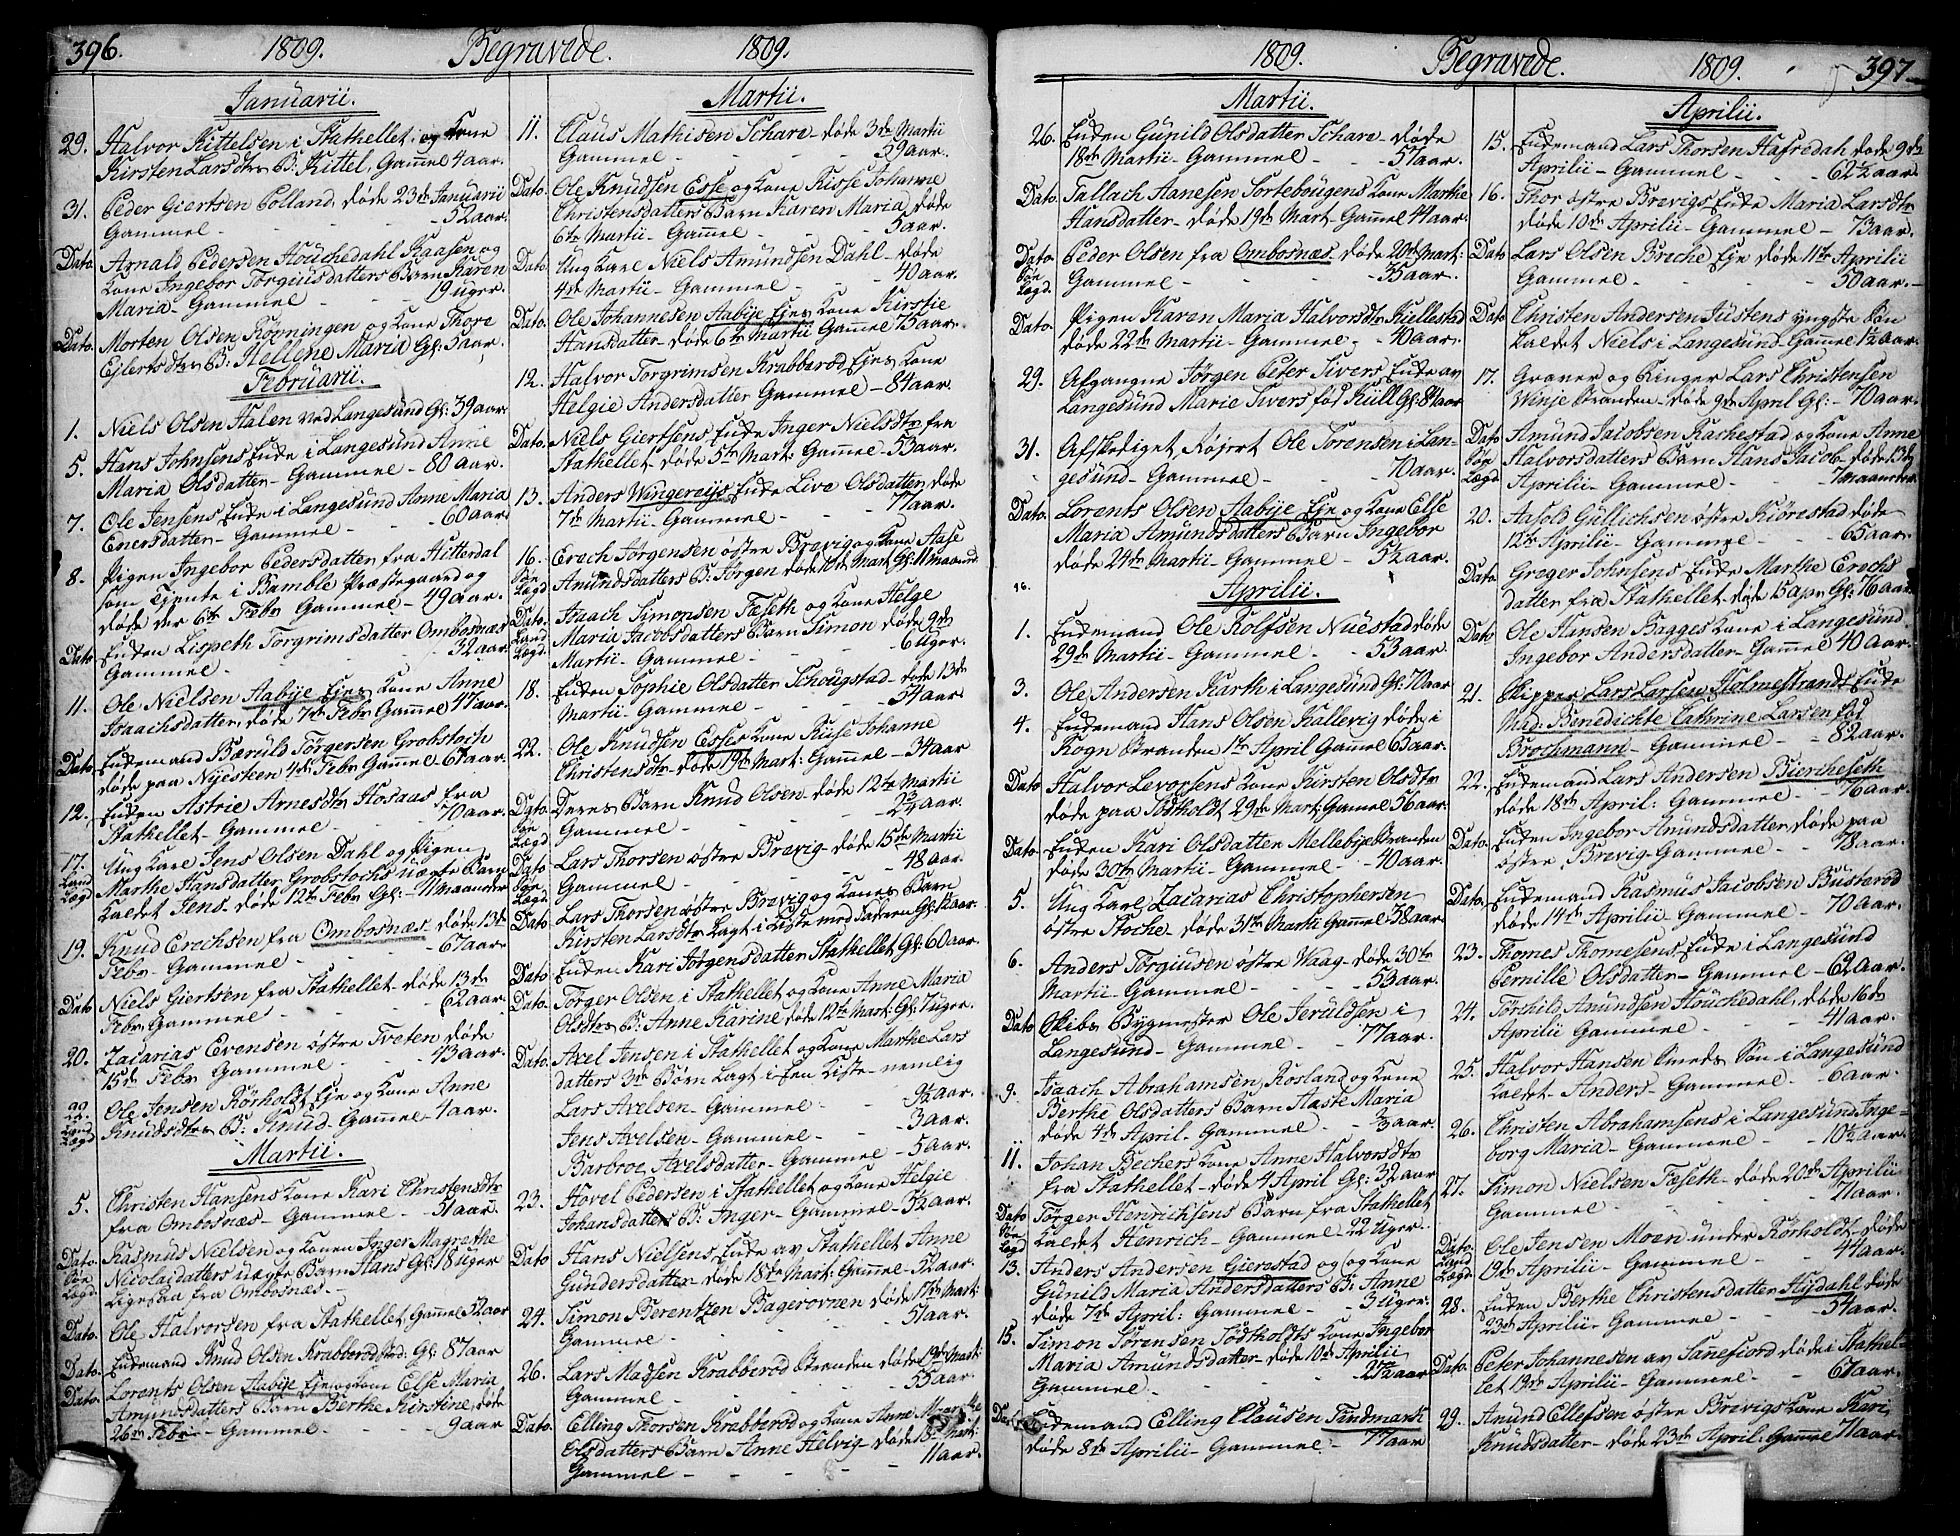 396. 1809. Begravede. 1809.
Januarii.
29. Halvor Kittelsen i Stathellet og Kone
Kirsten Larsdtrs B: Kittel, Gammel 4 aar.
31. Peder Giertsen Polland, døde 23de Januarii
Gammel - 52 aar.
Dato. Arnald Pedersen Houchedahl Kaasen og
Kone Ingebor Torguisdatters Barn Karen
Maria - Gammel - 19 uger.
Dato. Morten Olsen Rovningen og Kone Thore
Ejlertsdtrs B: Hellene Maria Gl: 5 aar.
Februarii.
1. Niels Olsen Halen ved Langesund Gl: 39 aar.
5. Hans Johnsens Enke i Langesund Anne
Maria Olsdatter - Gammel - 80 aar.
7. Ole Jensens Enke i Langesund Anne Maria
Enersdatter - Gammel - 60 aar.
8. Pigen Ingebor Pedersdatter fra Hitterdal
som tjente i Bamble Præstegaard og
døde der 6te Febr Gammel - 49 aar.
Dato Enken Lispeth Torgrimsdatter Ombosnæs
Gammel - 32 aar.
11. Ole Nielsen Aabije Ejes Kone Anne
Isaachsdatter, døde 7de Febr Gammel 47 aar.
Dato. Enkemand Baruld Jørgensen Grobstoch
døde paa Nyesken 4de Febr Gammel 67 aar.
12. Enken Astrie Arnesdtr Aosaas fra
Stathellet - Gammel - 70 aar.
17. Ung Karl Jens Olsen Dahl og Pigen
Land Lægd Marthe Hansdatter Grobstochs uægte Barn
kaldet Jens, døde 12te Febr Gl: 11 Maaneder
19. Knud Erechsen fra Ombosnæs døde 13de
Febr - Gammel - 67 aar.
Dato Niels Giertsen fra Stathellet - døde 13de
Febr Gammel - 62 aar.
20. Zacarias Evensen østre Tveten døde
15de Febr Gammel - 43 aar.
22. Ole Jensen Rørholdt Eje og Kone Anne
Land Lægd Knudsdtrs B: Knud - Gammel - 1 aar.
Martii.
5. Christen Hansens Kone Kari Christensdtr
fra Ombosnæs - Gammel - 51 aar.
Dato Rasmus Nielsen og Konen Inger Magrethe
Søe Lægd. Nicolaidatters uægte Barn Hans Gl: 18 uger
Ligesaa fra Ombosnæs -
Dato. Ole Halvorsen fra Stathellet Gammel 52 aar
Dato. Enkemand Knud Olsen Krabberødstad: Gl: 87 aar
Dato. Lorents Olsen Aabije Eje og Kone Else Maria
Amundsdatters Barn Berthe Kirstine, døde
26de Febr - Gammel - 9 aar
Martii.
11. Claus Mathisen Schare - døde 3de Martii
Gammel - 59 aar.
Dato. Ole Knudsen Esse og Kone Kisse Johanne
Christensdatters Barn Karen Maria, døde
6te Martii - Gammel - 5 aar.
Dato. Ung Karl Niels Amundsen Dahl - døde
4de Martii - Gammel - 40 aar.
Dato. Ole Johannesen Aabije Ejes Kone Kirstie
Hansdatter - døde 6te Martii Gammel 75 aar.
12. Halvor Torgrimsen Krabberød Ejes Kone
Helgie Andersdatter Gammel - 84 aar.
Dato. Niels Giertsens Enke Inger Nielsdtr fra
Stathellet døde 5te Mart: Gammel - 53 aar.
13. Anders Wingereijs Enke Live Olsdatter, døde
7de Martii - Gammel - 77 aar.
16. Erech Jørgensen østre Brevig og Kone Aase
Søe Lægd Amundsdatters B: Jørgen døde 10de Mart Gl: 11 Maaned
Dato. Isaach Simonsen Fæseth og Kone Helge
Land Lægd. Maria Jacobsdatters Barn Simon døde 9de
Martii - Gammel - 6 Uger.
18. Enken Sophie Olsdatter Schougstad - døde 13de
Martii - Gammel - 54 aar.
22. Ole Knudsen Esses Kone Kisse Johanne
Christensdtr - døde 19de Mart: Gammel - 34 aar
Dato Deres Barn Knud Olsen - døde 12te Martii
Søe Lægd Gammel - 2¾ aar.
Dato Lars Thorsen østre Brevig - døde 15de Martii
Søe Lægd. Gammel - 48 aar.
Dato Lars Thorsen østre Brevig og Kones Barn
Kirsten Larsdtr Lagt i Kiste med Faderen Gl: 12 aar.
Dato Enken Kari Jørgensdatter Stathellet Gl: 60 aar.
Dato. Tørger Olsen i Stathellet og Kone Anne Maria
Olsdtrs B: Anne Karine døde 12te Mart: Gl: 7 uger.
Dato. Axel Jensen i Stathellet og Kone Marthe Lars
datters 3de Børn Lagt i Een Kiste - nemlig
Lars Axelsen - Gammel - 9½ aar.
Jens Axelsen - Gammel - 3 aar.
Barbroe Axelsdatter - Gammel - 5 aar.
23. Hovel Pedersen i Stathellet og Kone Helgie
Johansdatters B: Inger - Gammel - 3½ aar.
Dato Hans Nielsens Enke av Stathellet Anne
Gundersdatter, døde 18de Mart: Gammel - 52 aar.
24. Simon Berentzen Bagerovnen døde 17de Mart:
Gammel - 51 aar.
26. Lars Madsen Krabberød Stranden døde 19de Mart:
Gammel - 55 aar.
Dato. Elling Thorsen Krabberød og Kone Anne
Olsdatters Barn Anne Helvig - døde 18de Mart:
Gammel - 11 aar.
1809. Begravede. 1809. 397.
Martii.
26. Enken Gunild Olsdatter Schare - døde
18de Martii - Gammel - 57 aar.
Dato. Tallach Aanesen Sortebougens Kone Marthe
Hansdatter - døde 19de Mart - Gammel 44 aar.
Dato Peder Olsen fra Ombosnæs døde 20de Mart:
Søe Lægd. Gammel - 35 aar.
Dato. Pigen Karen Maria Halvorsdtr Kullestad
døde 22de Martii - Gammel - 40 aar.
29. Afgangne Jørgen Peter Sivers Enke av
Langesund Marie Sivers fød Kull Gl: 84 aar
31. Afskediget Røjert Ole Sørensen i Lan-
gesund - Gammel - 70 aar.
Dato. Lorents Olsen Aabije Eje og Kone Else
Maria Amundsdatters Barn Ingebor
døde 24de Martii - Gammel - 5½ aar.
Aprilii.
1. Enkemand Ole Rolfsen Nuestad døde
29de Martii - Gammel - 53 aar.
3. Ole Andersen Karth i Langesund Gl: 70 aar
4. Enkemand Hans Olsen Kallevig døde i
Kogn Stranden 1te April Gammel 65 aar.
Dato Halvor Levorsens Kone Kirsten Olsdtr
døde paa Sødtholdt 29de Mart: Gammel 56 aar.
Dato. Enken Kari Olsdatter Mellebye Stranden
døde 30te Martii - Gammel - 40 aar.
5. Ung Karl Zacarias Christophersen
østre Stoche - døde 31te Martii Gammel 38 aar.
6. Anders Torgiusen østre Waag - døde 30te
Martii - Gammel - 53 aar.
Dato Skibs Bygmester Ole Jeruldsen i
Langesund - Gammel - 77 aar.
9. Isaach Abrahamsen Rosland og Kone
Berthe Olsdatters Barn Aaste Maria
døde 4de April - Gammel - ¾ aar.
11. Johan Bechers Kone Anne Halvorsdtr
fra Stathellet - døde 4 April Gl: 32 aar
Dato Tørger Henrichsens Barn fra Stathellet
Søe Lægd kaldet Henrich - Gammel - 22 Uger.
13. Anders Andersen Gierestad og Kone
Gunild Maria Andersdatters B: Anne
døde 7de April: Gammel - 3 Uger.
15. Simon Sørensen Sødtholdts Kone Ingebor
Maria Amundsdatter - døde 10de Aprilii
Gammel - 27½ aar
Dato Enkemand Elling Clausen Findmark
døde 8de Aprilii - Gammel - 77 aar
Aprilii.
15. Enkemand Lars Thorsen Hafredah døde 9de
Aprilii - Gammel - 62½ aar.
16. Thor østre Brevigs Enke Maria Larsdtr
døde 10de Aprilii - Gammel - 73 aar.
Dato Lars Olsen Breche Eje døde 11te Aprilii
Gammel - 50 aar.
Dato Christen Andersen Sustens yngste Søn
kaldet Niels i Langesund - Gammel 1½ aar.
17. Graver og Ringer Lars Christensen
Winje Stranden - døde 9de April Gl: - 70 aar.
Dato Amund Jacobsen Raschestad og Kone Anne
Søe Lægd Halvorsdatters Barn Hans Jacob - døde 13de
Aprilii - Gammel -
20. Aasold Gullichsen østre Kiørestad døde
12te Aprilii - Gammel - 65 aar.
Dato Greger Johnsens Enke Marthe Erechs
datter fra Stathellet - døde 15 Apr Gl: 76 aar
Dato Ole Hansen Bagges Kone i Langesund
Ingebor Andersdatter - Gammel 40 aar.
21. Skipper Lars Larsen Holmestrands Enke
Mad: Benedichte Cathrine Larsen fød
Brochmann - Gammel - 82 aar.
22. Enkemand Lars Andersen Biercheseth
døde 18de April: Gammel - 76 aar.
Dato. Enken Ingebor Amundsdatter, døde paa
østre Brevig - Gammel - 78 aar.
Dato. Enkemand Rasmus Jacobsen Busterød
døde 14de Aprilii - Gammel - 70 aar.
23. Thomes Thomesens Enke i Langesund
Pernille Olsdatter - Gammel - 62 aar.
24. Torchild Amundsen Houchedahl, døde 16de
Aprilii Gammel - 41 aar.
25. Halvor Hansen Smeds Søn i Langesund
kaldet - Anders - Gammel - 6 aar.
26. Christen Abrahamsens i Langesund Inge-
borg Maria - Gammel - 10½ aar.
27. Simon Nielsen Fæseth - døde 20de Aprilii
Gammel - 71 aar.
Dato. Ole Jensen Moen under Rørholdt - døde
Land Lægd. 19de Aprilii - Gammel - 44 aar.
28. Enken Berthe Christensdatter Høydahl døde
23de Aprilii - Gammel - 54 aar.
Dato. Peter Johannesen av Sannefiord døde i Stathel-
let 19de Aprilii - Gammel - 67 aar.
29. Anund Ellefsen østre Brevigs Kone Kari
Knudsdatter - døde 23de April: Gammel 71 aar.